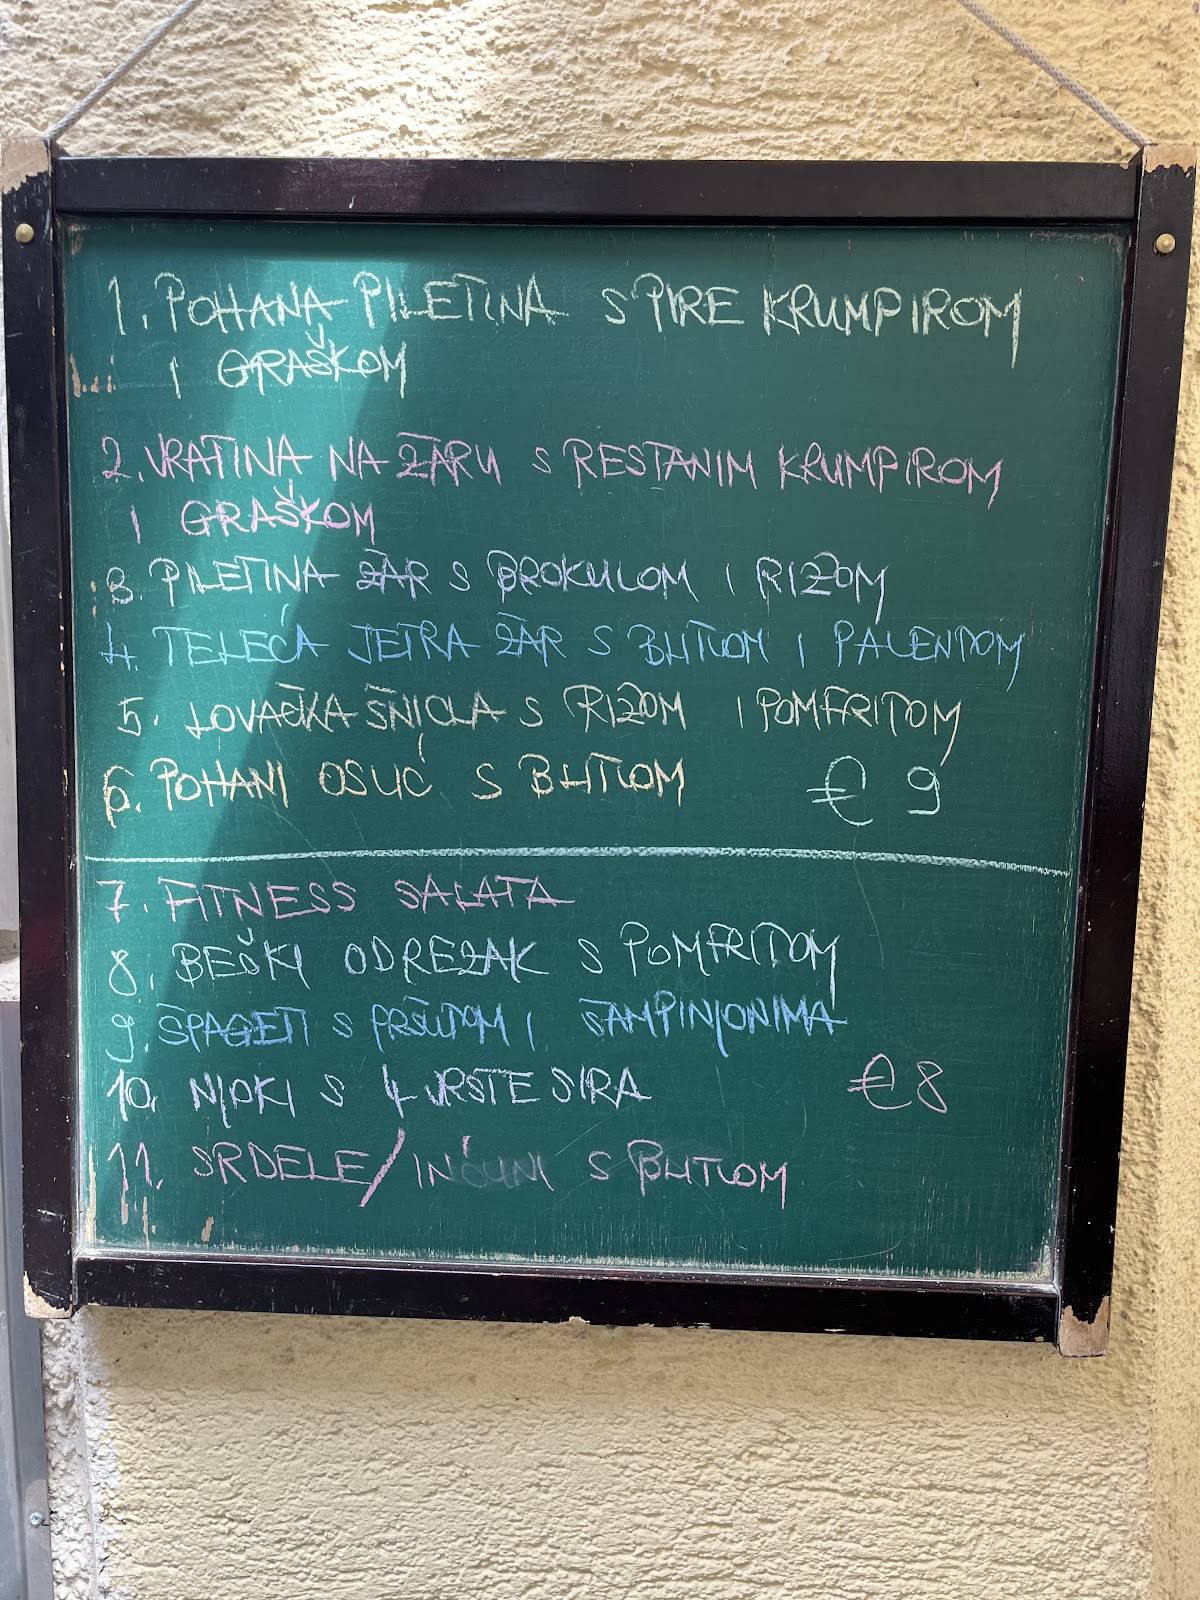 1. POHANA PILETINA S PIRE KRUMPIROM
I GRAŠKOM
2. VRATINA NA ŽARU S RESTANIM KRUMPIROM
I GRAŠKOM
3. PILETINA ŽAR S BROKULOM I RIŽOM
4. TELEĆA JETRA ŽAR S BLITVOM I PALENTOM
5. LOVAČKA ŠNICLA S RIŽOM I POMFRITOM
6. POHANI OSLIĆ S BLITVOM € 9
7. FITNESS SALATA
8. BEČKI ODREZAK S POMFRITOM
9. ŠPAGETI S PRŠUTOM I ŠAMPINJONIMA
10. NJOKI S 4 VRSTE SIRA €8
11. SRDELE/INĆUNI S BLITVOM